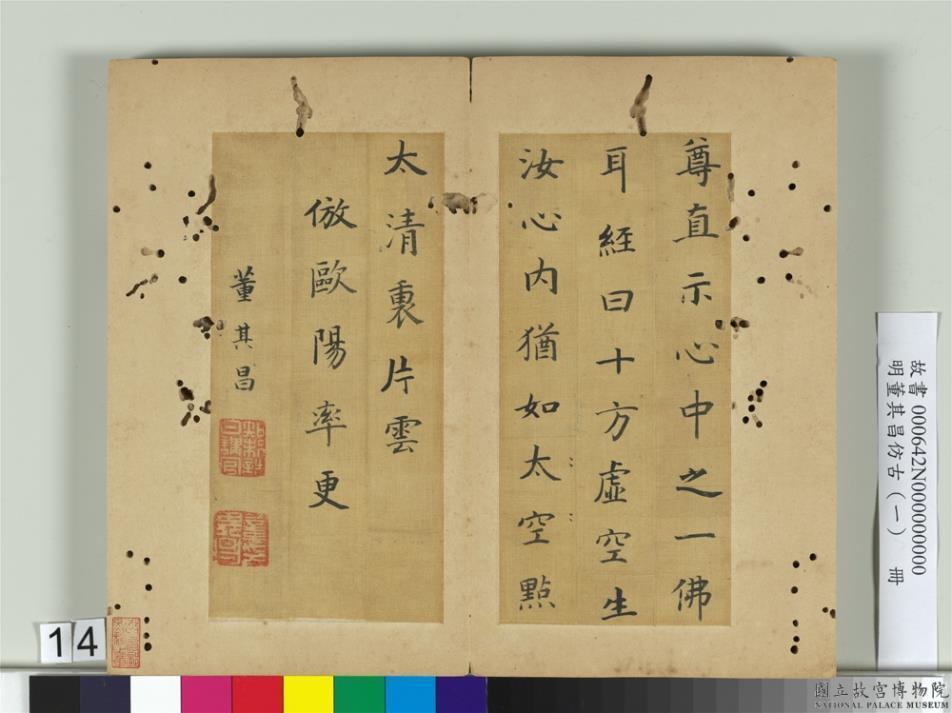 尊直示心中之一佛
耳經曰十方虛空生
汝心內猶如太空點
太清裏片雲
倣歐陽率更
董其昌
故書 000642N000000000
明董其昌仿古(一) 冊
14
國立故宮博物院
NATIONAL PALACE MUSEUM